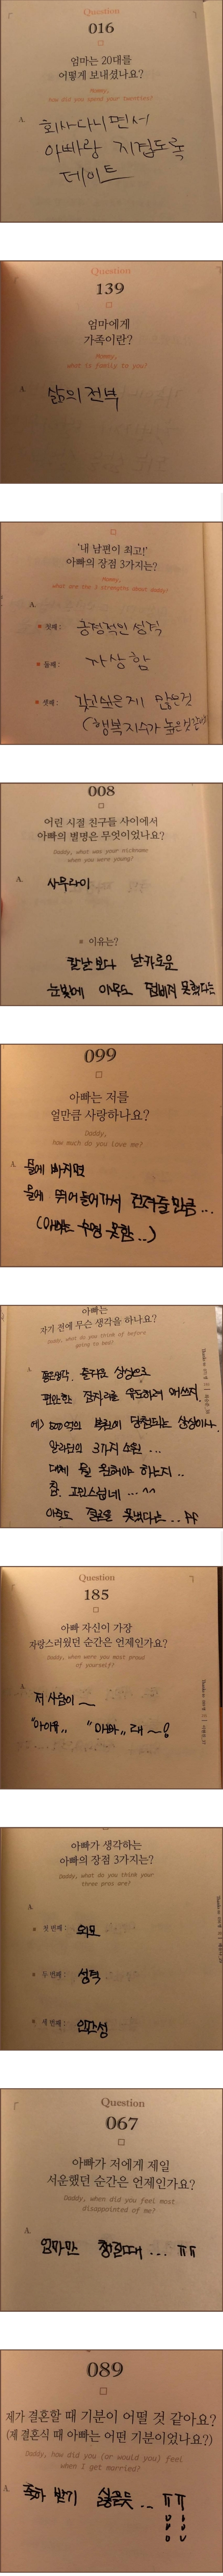 Question
016
엄마는 20대를
어떻게 보내셨나요?
Mommy,
how did you spend your twenties?
A.
회사다니면서
아빠랑 지겹도록
데이트
Question
139
엄마에게
가족이란?
Mommy,
what is family to you?
A.
삶의 전부
'내 남편이 최고!'
아빠의 장점 3가지는?
Mommy,
what are the 3 strengths about daddy?
A.
첫째 : 긍정적인 성격
둘째 : 자상함
셋째 : 갖고싶은게 많은것
(행복지수가 높은것같아)
008
어린 시절 친구들 사이에서
아빠의 별명은 무엇이었나요?
Daddy, what was your nickname
when you were young?
A.
사무라이
※ 이유는?
칼날보다 날카로운
눈빛에 아무도 덤비지 못했다는
099
아빠는 저를
얼만큼 사랑하나요?
Daddy,
how much do you love me?
A. 물에 빠지면
물에 뛰어들어가서 건져줄만큼...
(아빠는 수영 못함..)
아빠는
자기 전에 무슨 생각을 하나요?
Daddy, what do you think of before
going to bed?
A.
즐거운 상상으로
편안한 잠자리를 유도하려 애쓰지
예) 500억의 복권이 당첨되는 상상이나.
알라딘의 3가지 소원...
대체 뭘 원해야 하는지..
참. 고민스럽네...^^
아직도 결론을 못냈다는...ㅠㅠ
Question
185
아빠 자신이 가장
자랑스러웠던 순간은 언제인가요?
Daddy, when were you most proud
of yourself?
A.
저 사람이~
"아이유,, "아빠,, 래~!
아빠가 생각하는
아빠의 장점 3가지는?
Daddy, what do you think your
three pros are?
A.
첫 번째 : 외모
두 번째 : 성격
세 번째 : 인간성
Question
067
아빠가 저에게 제일
서운했던 순간은 언제인가요?
Daddy, when did you feel most
disappointed of me?
A.
엄마만 챙길때... ㅠㅠ
089
제가 결혼할 때 기분이 어떨 것 같아요?
(제 결혼식 때 아빠는 어떤 기분이었나요?)
Daddy, how did you (or would you) feel
when I get married?
A.
축하 받기 싫을듯... ㅠㅠ